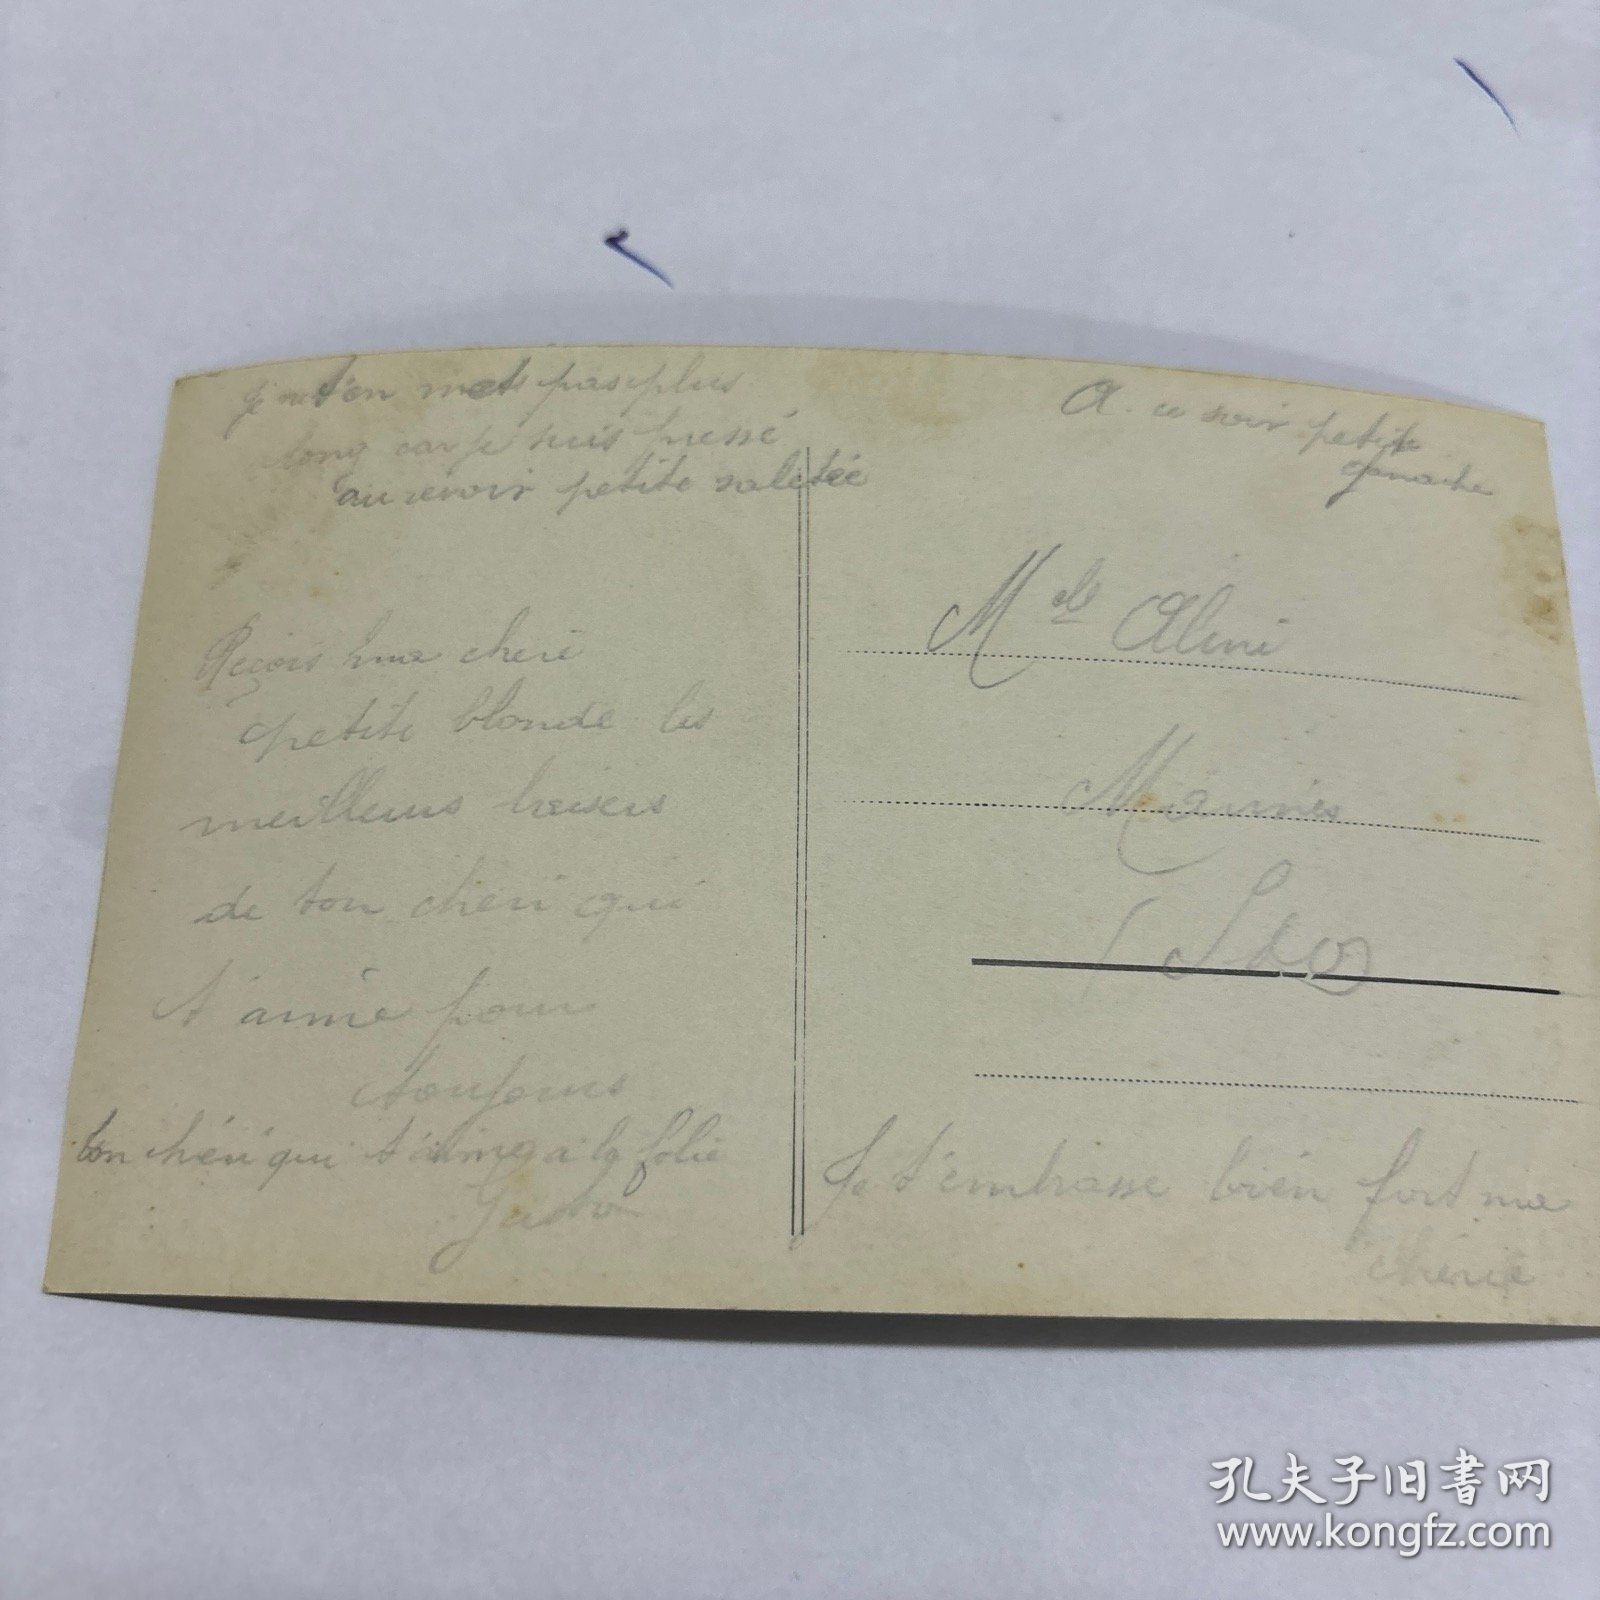 Je ne t'en mets pas plus
long car je suis pressé
au revoir petite saletée
Reçois ma cheri
petite blonde les
meilleurs baisers
de ton cheri qui
t'aime pour
toujours
ton chéri qui t'aime a la folie
A. ce soir petite
ganache
Mlle Alini
Je t'embrasse bien fort ma
chérie
孔夫子旧书网
www.kongfz.com